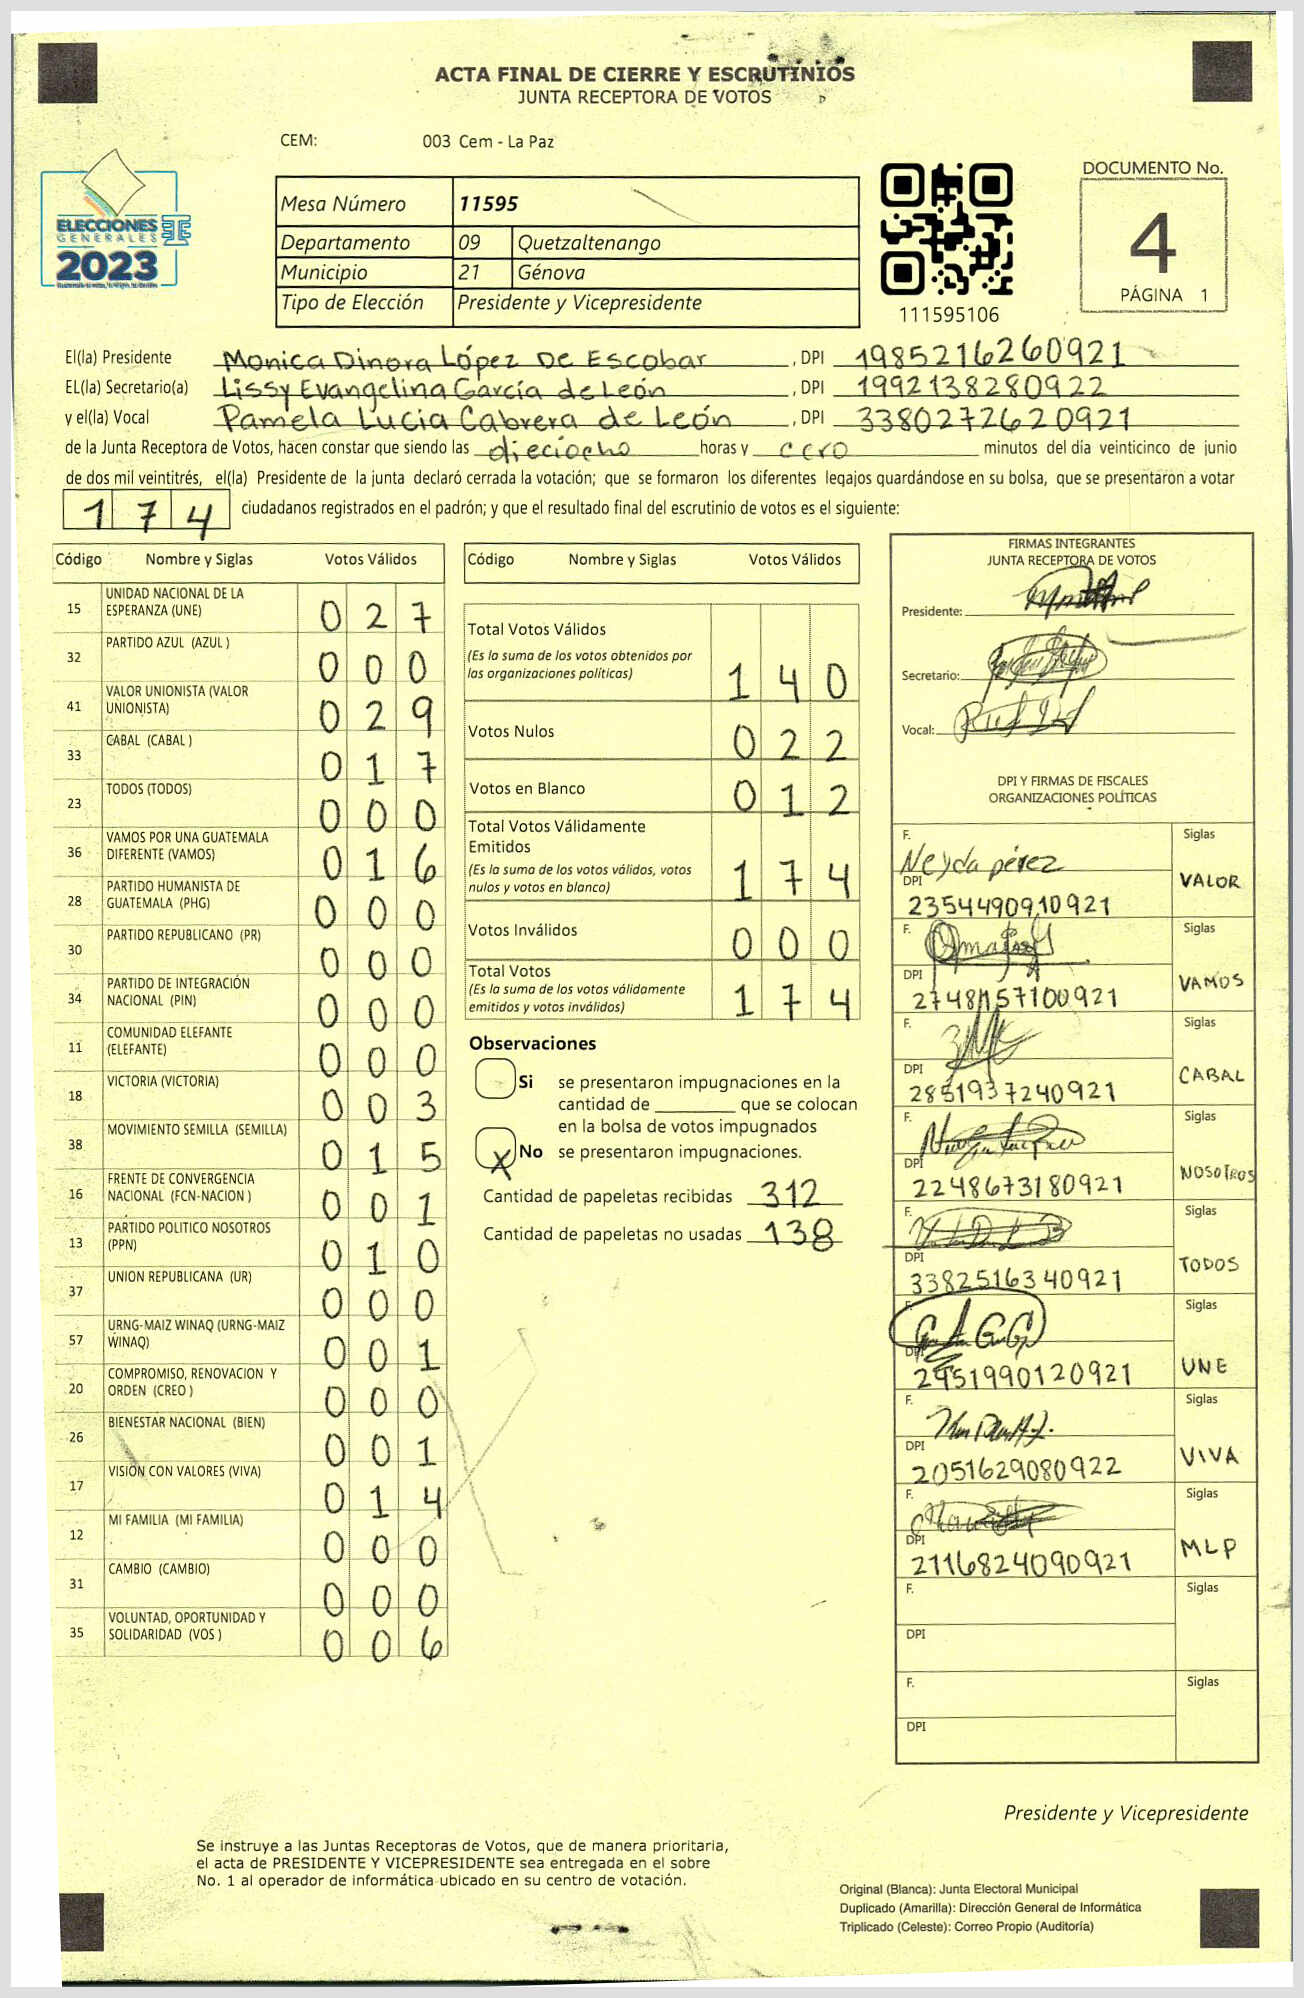 ACTA FINAL DE CIERRE Y ESCRUTINIOS
JUNTA RECEPTORA DE VOTOS
CEM: 003 Cem - La Paz
ELECCIONES
GENERALES
2023
Mesa Número 11595
Departamento 09 Quetzaltenango
Municipio 21 Génova
Tipo de Elección Presidente y Vicepresidente
111595106
DOCUMENTO No.
4
PÁGINA 1
El(la) Presidente Monica Dinora López De Escobar, DPI 1985216260921
EL(la) Secretario(a) Lissy Evangelina García de León, DPI 1992138280922
y el(la) Vocal Pamela Lucia Cabrera de León, DPI 3380272620921
de la Junta Receptora de Votos, hacen constar que siendo las dieciocho horas y cero minutos del día veinticinco de junio
de dos mil veintitrés, el(la) Presidente de la junta declaró cerrada la votación; que se formaron los diferentes legajos quardándose en su bolsa, que se presentaron a votar
174 ciudadanos registrados en el padrón; y que el resultado final del escrutinio de votos es el siguiente:
Código Nombre y Siglas Votos Válidos
15 UNIDAD NACIONAL DE LA ESPERANZA (UNE) 027
32 PARTIDO AZUL (AZUL ) 000
41 VALOR UNIONISTA (VALOR UNIONISTA) 029
33 CABAL (CABAL ) 017
23 TODOS (TODOS) 000
36 VAMOS POR UNA GUATEMALA DIFERENTE (VAMOS) 016
28 PARTIDO HUMANISTA DE GUATEMALA (PHG) 000
30 PARTIDO REPUBLICANO (PR) 000
34 PARTIDO DE INTEGRACIÓN NACIONAL (PIN) 000
11 COMUNIDAD ELEFANTE (ELEFANTE) 000
18 VICTORIA (VICTORIA) 003
38 MOVIMIENTO SEMILLA (SEMILLA) 015
16 FRENTE DE CONVERGENCIA NACIONAL (FCN-NACION ) 001
13 PARTIDO POLITICO NOSOTROS (PPN) 010
37 UNION REPUBLICANA (UR) 000
57 URNG-MAIZ WINAQ (URNG-MAIZ WINAQ) 001
20 COMPROMISO, RENOVACION Y ORDEN (CREO ) 000
26 BIENESTAR NACIONAL (BIEN) 001
17 VISION CON VALORES (VIVA) 014
12 MI FAMILIA (MI FAMILIA) 000
31 CAMBIO (CAMBIO) 000
35 VOLUNTAD, OPORTUNIDAD Y SOLIDARIDAD (VOS ) 006
Código Nombre y Siglas Votos Válidos
Total Votos Válidos 140
(Es la suma de los votos obtenidos por
las organizaciones políticas)
Votos Nulos 022
Votos en Blanco 012
Total Votos Válidamente
Emitidos 174
(Es la suma de los votos válidos, votos
nulos y votos en blanco)
Votos Inválidos 000
Total Votos 174
(Es la suma de los votos válidamente
emitidos y votos inválidos)
Observaciones
Si se presentaron impugnaciones en la
cantidad de ________ que se colocan
en la bolsa de votos impugnados
X No se presentaron impugnaciones.
Cantidad de papeletas recibidas 312
Cantidad de papeletas no usadas 138
FIRMAS INTEGRANTES
JUNTA RECEPTORA DE VOTOS
Presidente:
Secretario:
Vocal:
DPI Y FIRMAS DE FISCALES
ORGANIZACIONES POLÍTICAS
F. Neyda pérez Siglas
DPI 2354490910921 VALOR
F. Siglas
DPI 2748157100921 VAMOS
F. Siglas
DPI 2851937240921 CABAL
F. Siglas
DPI 2248673180921 NOSOTROS
F. Siglas
DPI 3382516340921 TODOS
F. Siglas
DPI 2951990120921 UNE
F. Siglas
DPI 2051629080922 VIVA
F. Siglas
DPI 2116824090921 MLP
F. Siglas
DPI
F. Siglas
DPI
Presidente y Vicepresidente
Se instruye a las Juntas Receptoras de Votos, que de manera prioritaria,
el acta de PRESIDENTE Y VICEPRESIDENTE sea entregada en el sobre
No. 1 al operador de informática ubicado en su centro de votación.
Original (Blanca): Junta Electoral Municipal
Duplicado (Amarilla): Dirección General de Informática
Triplicado (Celeste): Correo Propio (Auditoría)